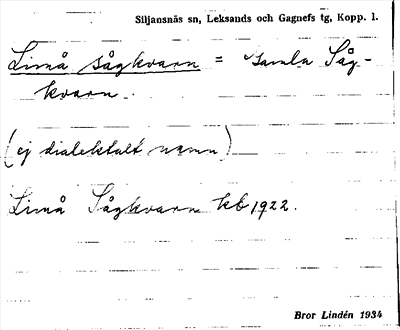 Siljansnäs sn, Leksands och Gagnefs tg, Kopp. l.
Limå sågkvarn = samla Såg-
kvarn.
(ej dialektalt namn)
Limå Sågkvarn kb 1922.
Bror Lindén 1934